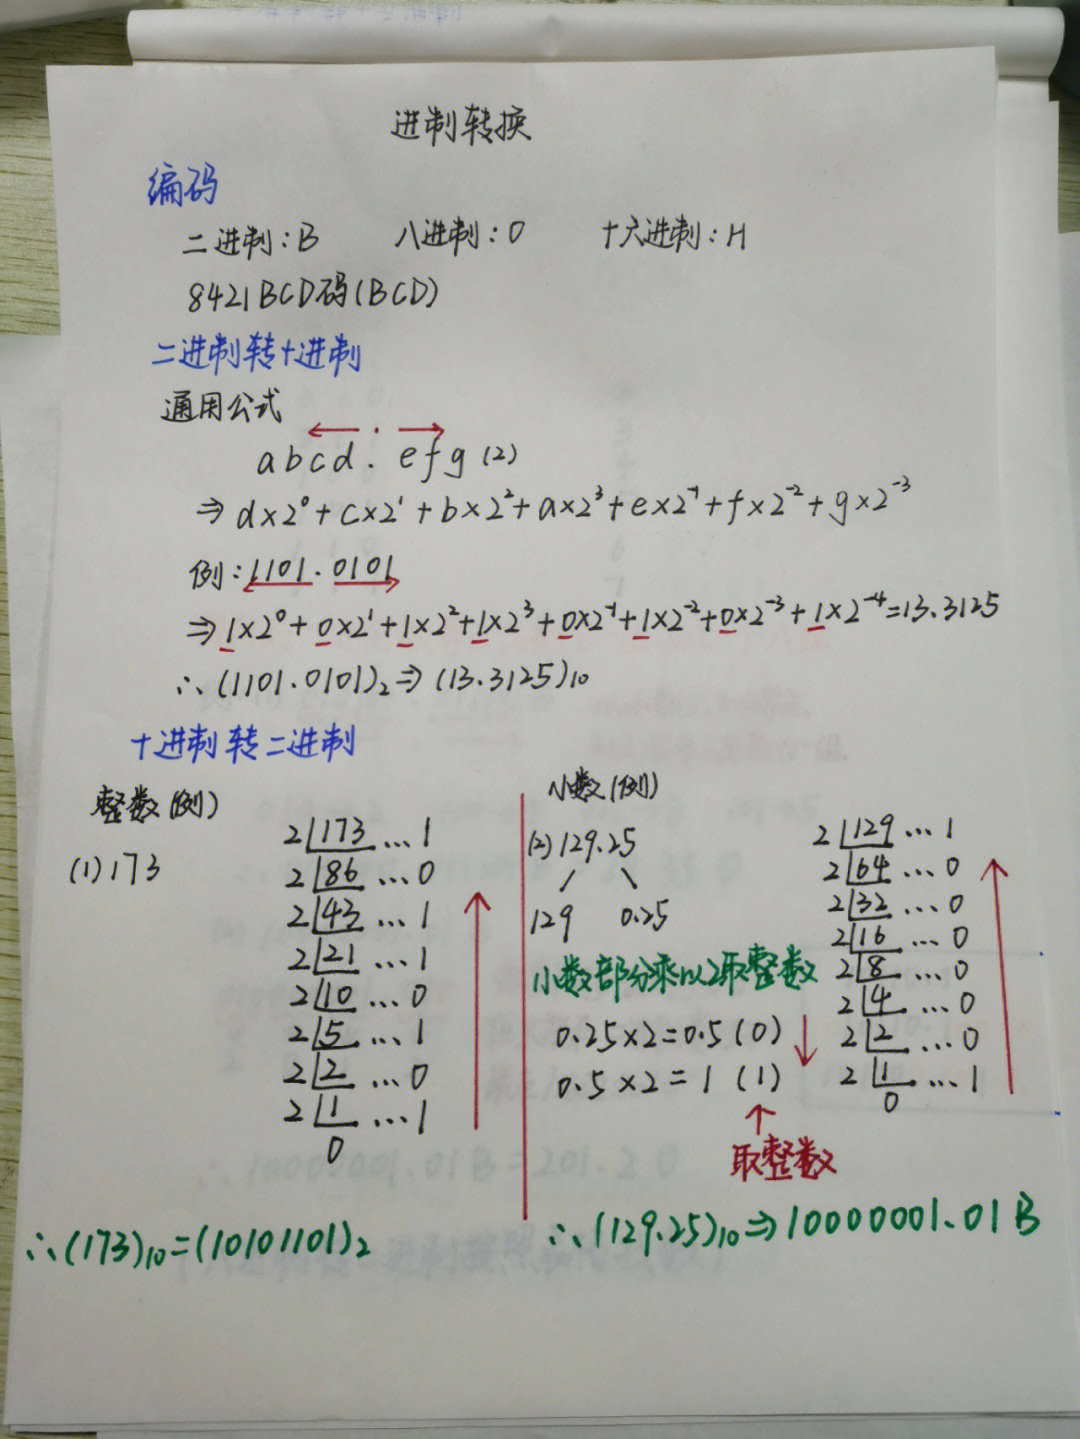 进制转换
编码
二进制:B 八进制:O 十六进制:H
8421BCD码(BCD)
二进制转十进制
通用公式
abcd.efg(2)
⇒d×2⁰+c×2¹+b×2²+a×2³+e×2⁻¹+f×2⁻²+g×2⁻³
例:1101.0101
⇒1×2⁰+0×2¹+1×2²+1×2³+0×2⁻¹+1×2⁻²+0×2⁻³+1×2⁻⁴=13.3125
∴(1101.0101)₂⇒(13.3125)₁₀
十进制转二进制
整数(例)
(1)173
2|173...1
2|86...0
2|43...1
2|21...1
2|10...0
2|5...1
2|2...0
2|1...1
0
∴(173)₁₀=(10101101)₂
小数(例)
(2)129.25
129 0.25
小数部分乘以2取整数
0.25×2=0.5(0)
0.5×2=1(1)
取整数
2|129...1
2|64...0
2|32...0
2|16...0
2|8...0
2|4...0
2|2...0
2|1...1
0
∴(129.25)₁₀⇒10000001.01B